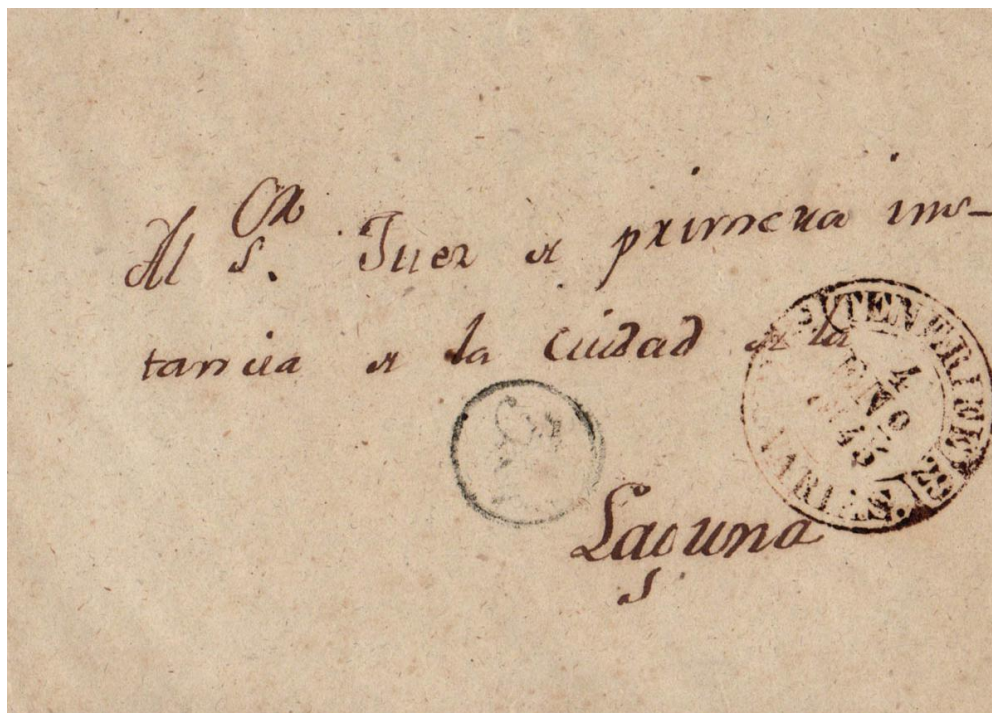 Al Sr. Juez de primera ins-
tancia de la ciudad de la
Laguna
TENERIFE
4
ENO
1845